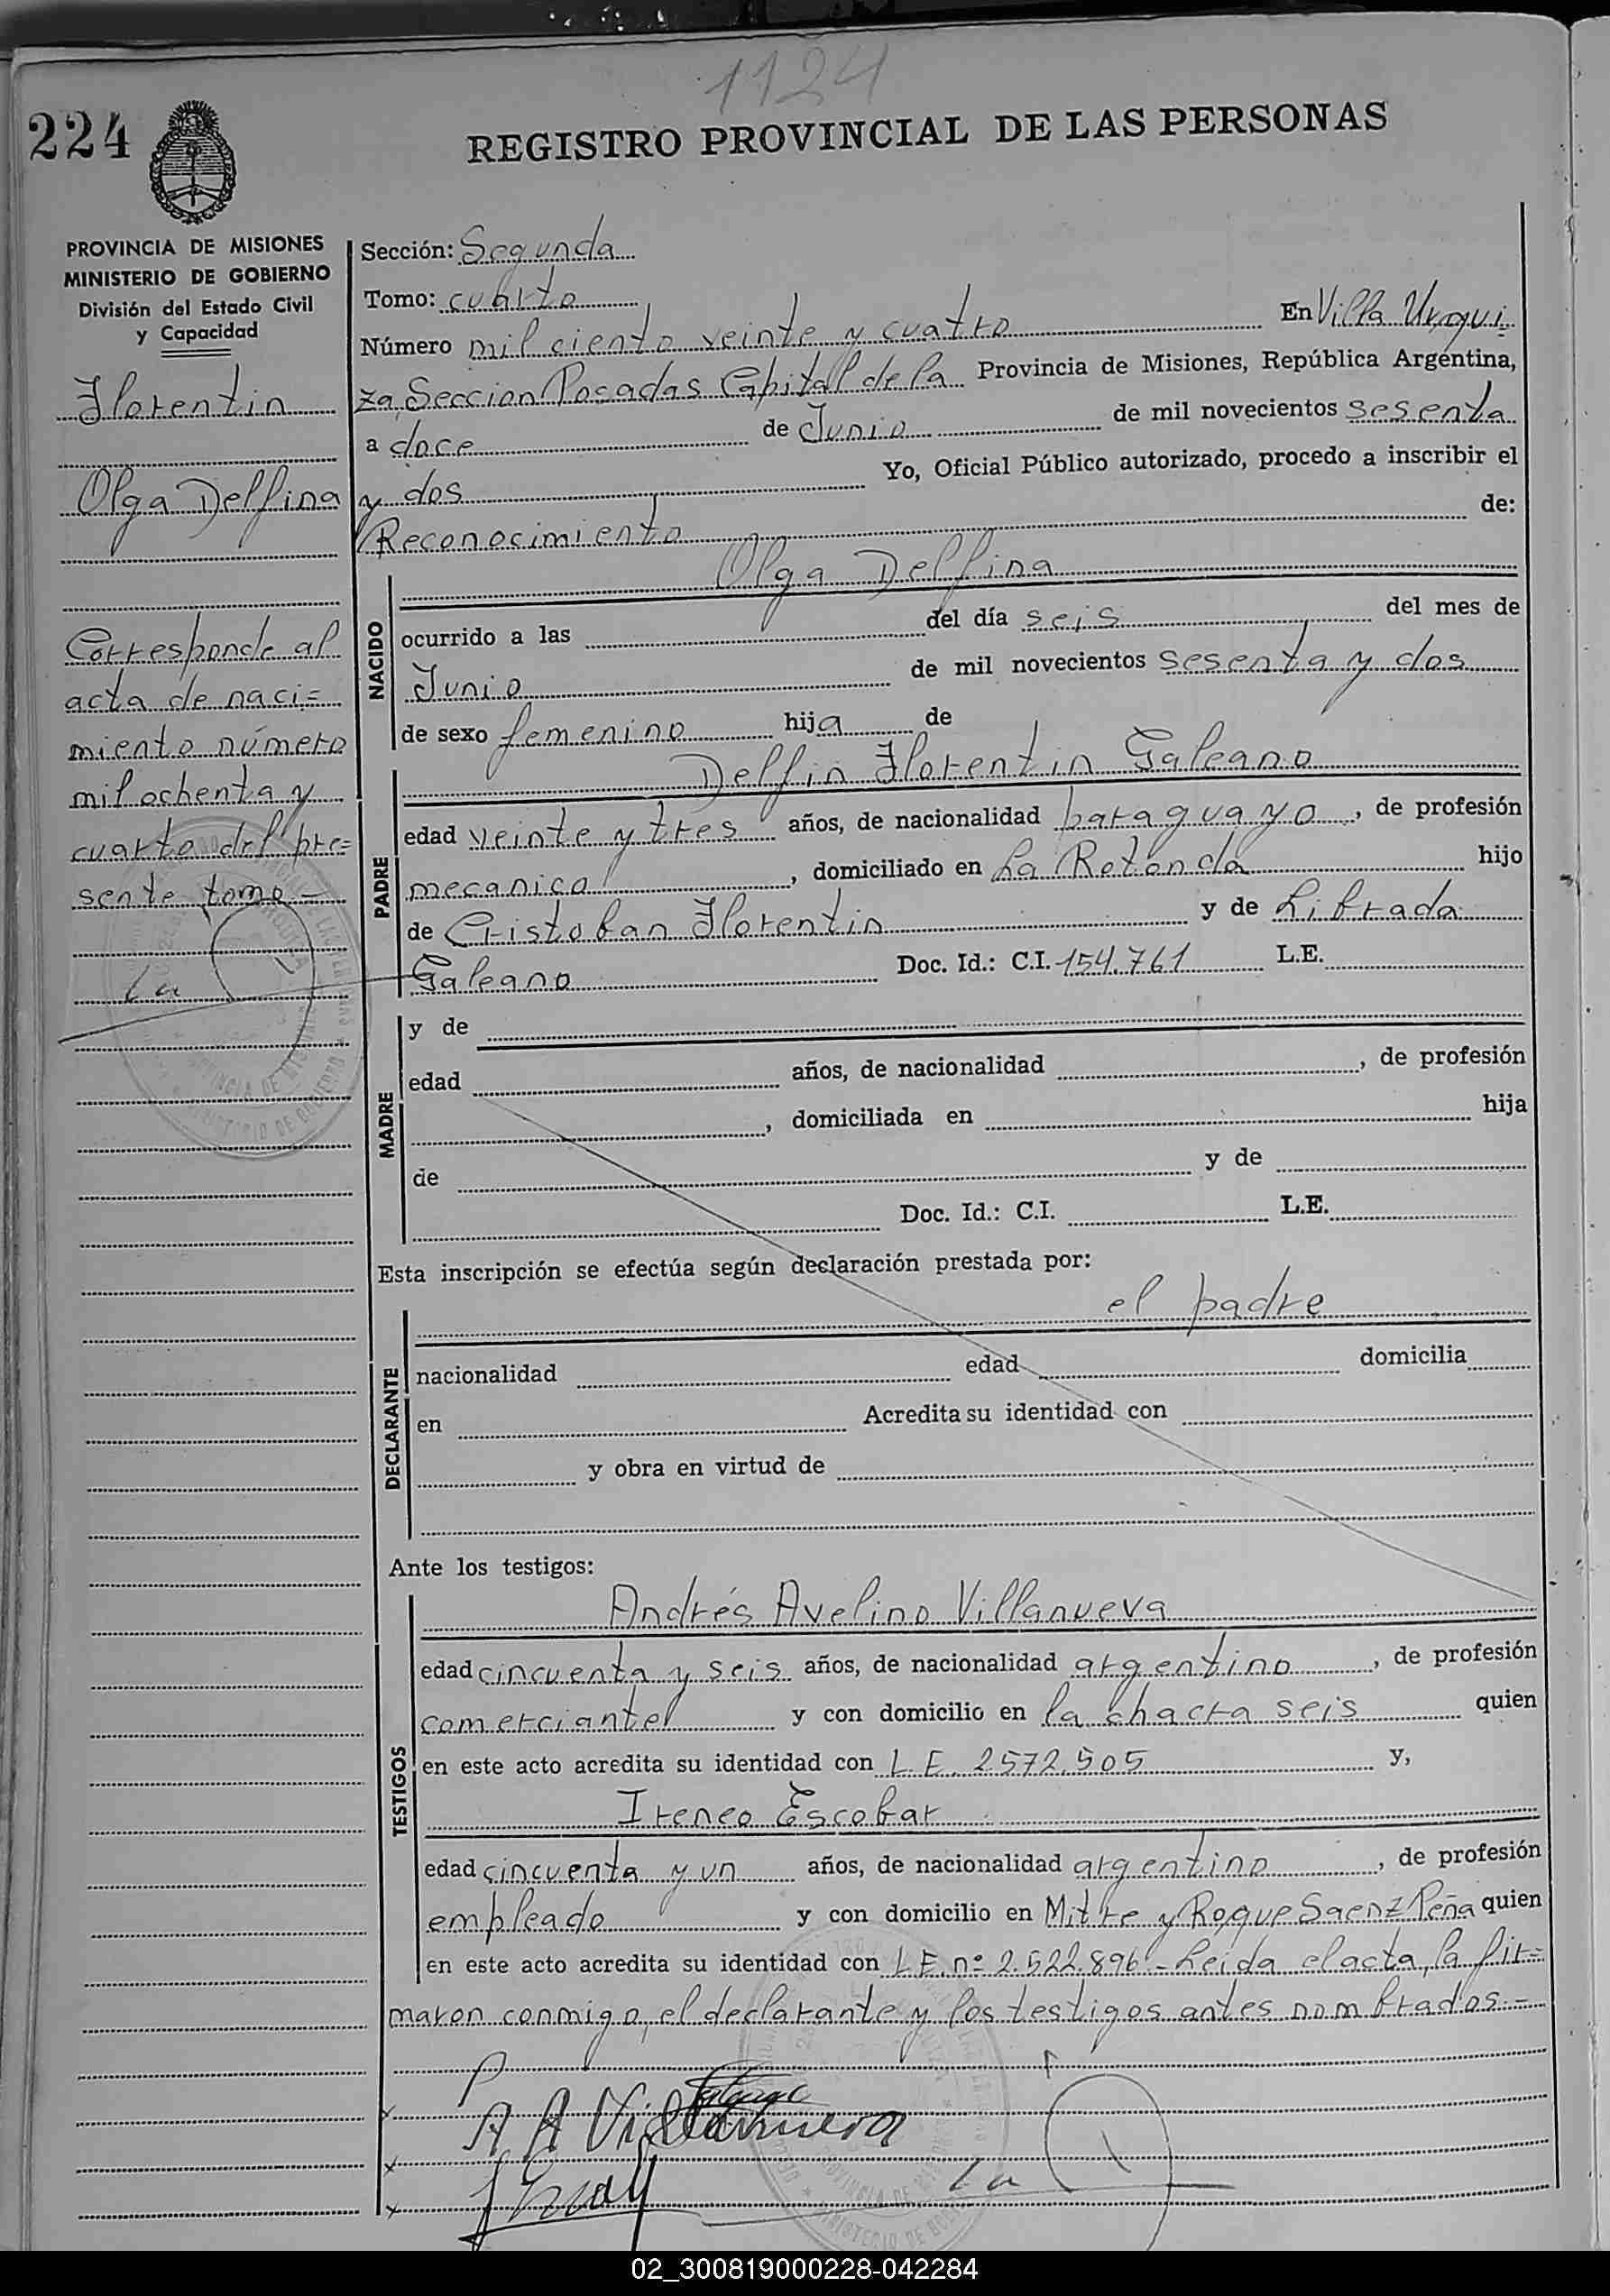 1124
224
REGISTRO PROVINCIAL DE LAS PERSONAS
PROVINCIA DE MISIONES
MINISTERIO DE GOBIERNO
División del Estado Civil
y Capacidad
Florentin
Olga Delfina
Corresponde al
acta de naci=
miento número
mil ochenta y
cuarto del pre=
sente tomo.-
Sección: Segunda
Tomo: cuarto
Número mil ciento veinte y cuatro En Villa Urqui
za, Seccion Posadas Capital de la Provincia de Misiones, República Argentina,
a doce de Junio de mil novecientos sesenta
y dos Yo, Oficial Público autorizado, procedo a inscribir el
Reconocimiento de:
NACIDO
Olga Delfina
ocurrido a las del día seis del mes de
Junio de mil novecientos sesenta y dos
de sexo femenino hija de
PADRE
Delfin Florentin Galeano
edad veinte y tres años, de nacionalidad paraguayo, de profesión
mecanico, domiciliado en La Rotonda hijo
de Cristoban Florentin y de Librada
Galeano Doc. Id.: C.I. 154.761 L.E.
MADRE
y de
edad años, de nacionalidad , de profesión
, domiciliada en hija
de y de
Doc. Id.: C.I. L.E.
Esta inscripción se efectúa según declaración prestada por:
el padre
DECLARANTE
nacionalidad edad domicilia
en Acredita su identidad con
y obra en virtud de
Ante los testigos:
TESTIGOS
Andrés Avelino Villanueva
edad cincuenta y seis años, de nacionalidad argentino, de profesión
comerciante y con domicilio en la chacra seis quien
en este acto acredita su identidad con L.E. 2572.505 y,
Ireneo Escobar
edad cincuenta y un años, de nacionalidad argentino, de profesión
empleado y con domicilio en Mitre y Roque Saenz Peña quien
en este acto acredita su identidad con L.E. nº 2.522.896.- Leida el acta, la fir=
maron conmigo, el declarante y los testigos antes nombrados.-
A A Villanueva
02_300819000228-042284